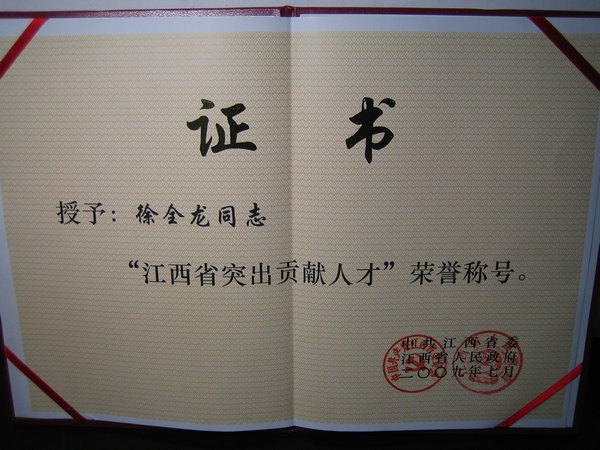 证 书
授予：徐全龙同志
“江西省突出贡献人才”荣誉称号。
中共江西省委
江西省人民政府
二〇〇九年七月